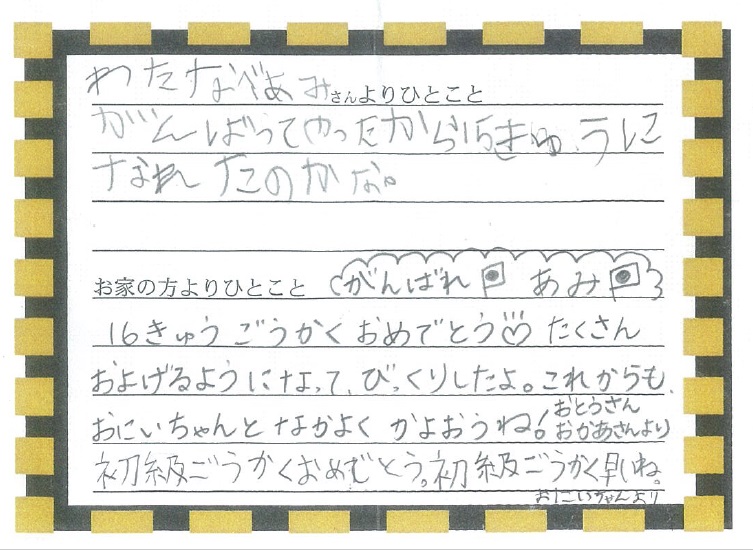 わたなべあみさんよりひとこと
がんばってやったから15きゅうに
なれたのかな。
お家の方よりひとこと がんばれ あみ
16きゅう ごうかく おめでとう♡ たくさん
およげるようになって、びっくりしたよ。これからも、
おにいちゃんと なかよく かよおうね!
おとうさん
おかあさんより
初級ごうかくおめでとう。初級ごうかく早いね。
おにいちゃんより